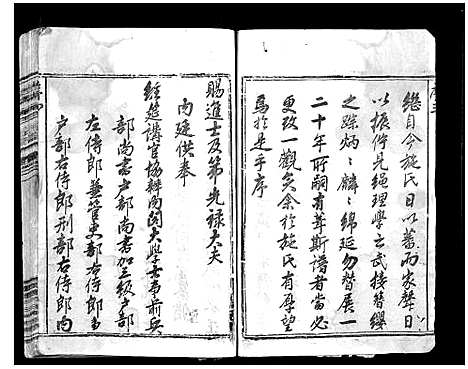 繼自今施氏日以蕃而家聲日
以振佇見繩理學之武接簪纓
之踪炳炳麟麟綿延勿替展一
二十年所嗣有葺斯譜者當必
更改一觀矣余於施氏有厚望
焉於是乎序
賜進士及第光祿大夫
內廷供奉
經筵講官協辦內閣大學士事前兵
部尚書戶部尚書加三級戶部
左侍郎兼管吏部右侍郎
戶部右侍郎刑部右侍郎內